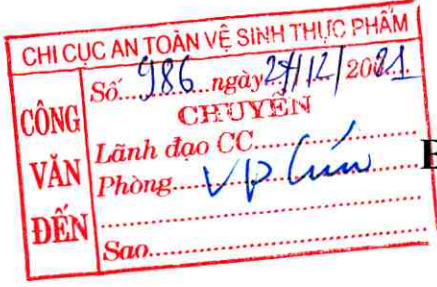 CHI CỤC AN TOÀN VỆ SINH THỰC PHẨM
CÔNG VĂN ĐẾN
Số....986...ngày 27/12/2021.
CHUYỂN
Lãnh đạo CC....................
Phòng....VP
Sao....................